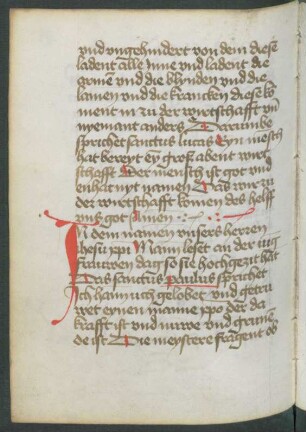 vnd vngehindert von dem diese
ladent alle Inne vnd ladent die
armen vnd die blynden vnd die
lamen vnd die krancken diese ko
ment in zu der wirtschafft vn
nyemant anders Darumbe
sprichet sanctus lucas Eyn mensch
hat bereyt ey groß abent wirt
schafft Der mensch ist got vnd
enhat nyt namen Das wir zu
der wirtschafft komen des helff
vns got Amen
In dem namen vnsers herren
ihesu xpi Mann leset an der iug
frauwen dag so sie hochgezit hat
Das sanctus paulus sprichet
Ich han uch gelobet vnd getru
wet eynen manne xpo der da
krafft ist vnd nuwe vnd grunen
de ist Die meystere fragent ob